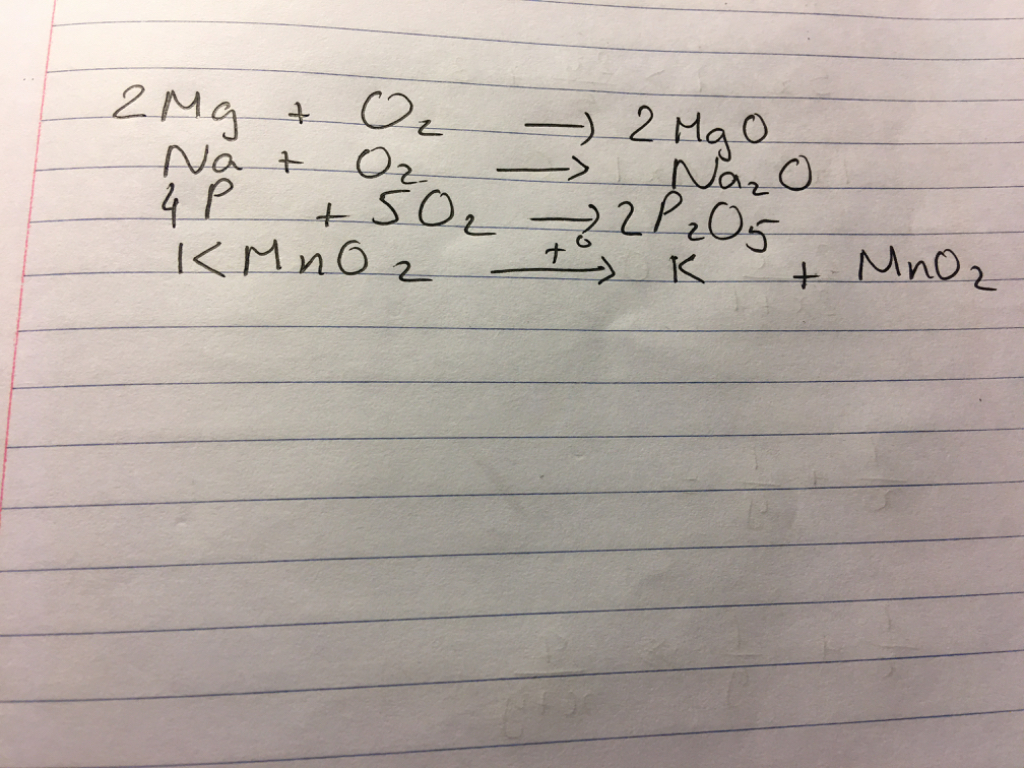 2Mg + O₂ → 2MgO
Na + O₂ → Na₂O
4P + 5O₂ → 2P₂O₅
KMnO₂ —t°→ K + MnO₂